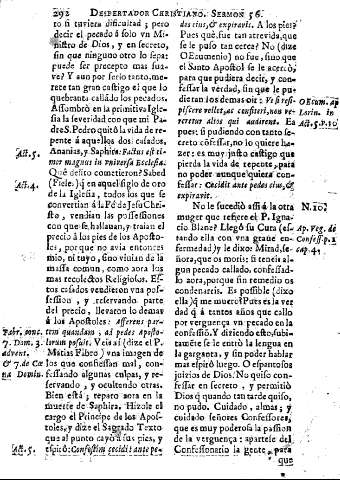 292 DESPERTADOR CHRISTIANO. SERMON 56.
to si tuviera dificultad; pero
decir el pecado à solo vn Mi-
nistro de Dios, y en secreto,
sin que ninguno otro lo sepa:
puede ser precepto mas sua-
ve? Y aun por serlo tanto, me-
rece tan gran castigo el que lo
quebranta callãdo los pecados.
Assombrò en la primitiva Igle-
sia la severidad con que mi Pa-
dre S. Pedro quitò la vida de re-
pente à aquellos dos casados,
Ananias, y Saphira: Factus est ti-
mor magnus in vniversa Ecclesia.
Què delito cometieron? Sabed
(Fieles) q̃ en aquel siglo de oro
de la Iglesia, todos los que se
convertian à la Fè de Jesu Chris-
to, vendian las possessiones
con que se hallauan, y traian el
precio à los pies de los Aposto-
les, porque no avia entonces
mio, ni tuyo, sino vivian de la
massa comun, como aora los
mas recoletos Religiosos. Es-
tos casados vendieron vna pos-
session, y reservando parte
del precio, llevaron lo demas
à los Apostoles: Afferens par-
tem quandam; ad pedes Aposto-
lorum posuit. Veis aì (dize el P.
Matias Fabro) vna imagen de
los que confiessan mal, con-
fessando algunas culpas, y re-
servando, y ocultando otras.
Bien està; reparo aora en la
muerte de Saphira. Hizole el
cargo el Principe de los Apos-
toles, y dize el Sagrado Texto
que al punto cayò à sus pies, y
espirò: Confestim cecidit ante pe-
Act. 5.
Act. 4.
Fabr. conc.
7. Dom. 3.
advent.
& 7. de Cœ
na Domin.
Act. 5.
des eius, & expiravit. A los pies?
Pues què, fue tan atrevida, que
se le puso tan cerca? No (dize
Oecumenio) no fue, sino que
el Santo Apostol se le acercò,
para que pudiera decir, y con-
fessar la verdad, sin que le pu-
dieran los demas oir: Vt si resi-
piscere vellet, ac confiteri, non ve-
reretur altos qui audirent. Ea
pues: si pudiendo con tanto se-
creto cõfessar, no lo quiere ha-
zer: es muy justo castigo que
pierda la vida de repente, para
no poder aunque quiera con-
fessar: Cecidit ante pedes eius, &
expiravit.
No le sucediò assi à la otra
muger que refiere el P. Ignacio
Blanc? Llegò su Cura (es-
tando ella con vna graue en-
fermedad) y le dixo: Mirad, se-
ñora, que os moris: si teneis al-
gun pecado callado, confessad-
lo aora, porque sin remedio os
condenareis. Es possible (dixo
ella) q̃ me muero? Pues es la ver-
dad q̃ à tantos años que callo
por verguença vn pecado en la
confessiõ. Y diziendo esto, subi-
tamente se le entrò la lengua en
la garganta, y sin poder hablar
mas espirò luego. O espantosos
juizios de Dios! No quiso con-
fessar en secreto, y permitiò
Dios q̃ quando tan tarde quiso,
no pudo. Cuidado, almas; y
cuidado señores Confessores,
que es muy poderosa la passion
de la verguença: apartese del
Confessionario la gente, para
que
Oecum. ap.
Lorin. in
Act. 5. v. 10.
N. 10.
Ap. Veg. de
Confess. p. 2
cap. 4.